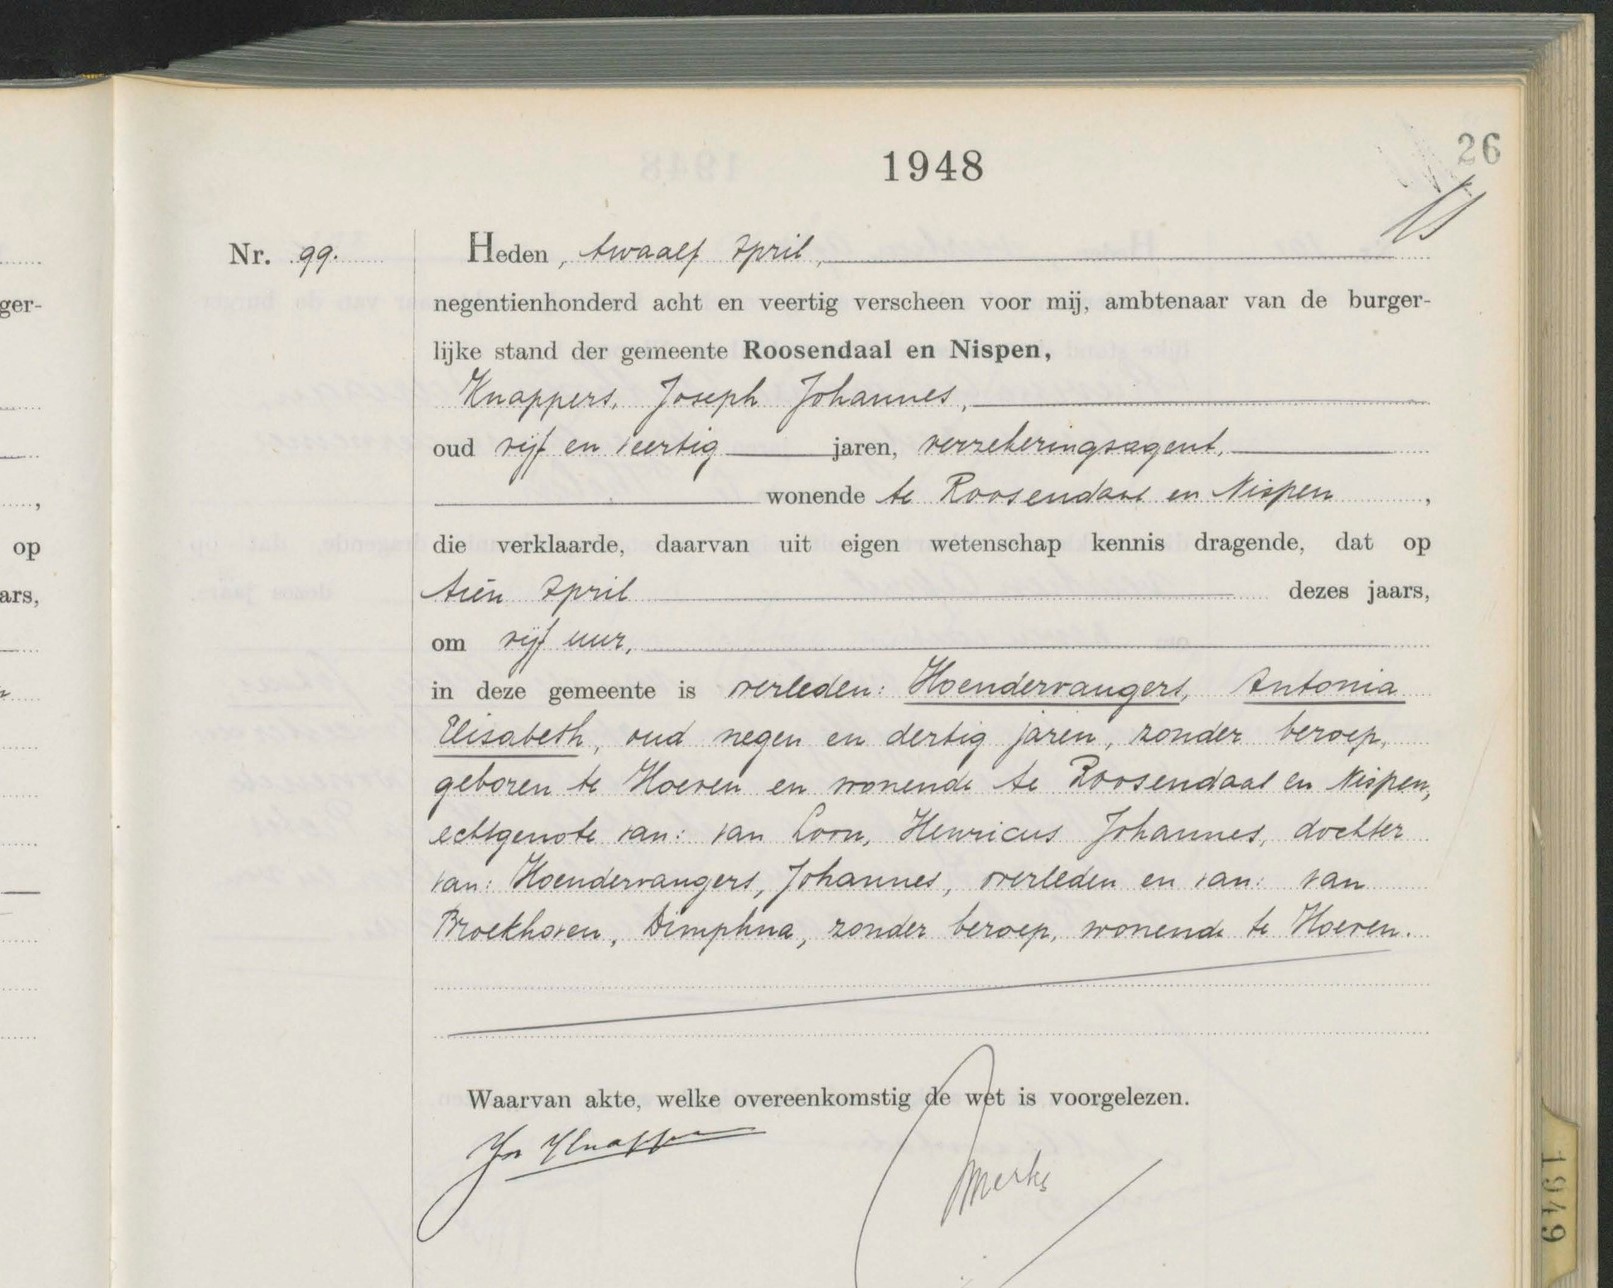 1948
26
Nr. 99.
Heden, twaalf April,
negentienhonderd acht en veertig verscheen voor mij, ambtenaar van de burger-
lijke stand der gemeente Roosendaal en Nispen,
Knappers, Joseph Johannes,
oud vijf en veertig jaren, verzekeringsagent,
wonende te Roosendaal en Nispen,
die verklaarde, daarvan uit eigen wetenschap kennis dragende, dat op
tien April dezes jaars,
om vijf uur,
in deze gemeente is overleden: Hoendervangers, Antonia
Elisabeth, oud negen en dertig jaren, zonder beroep,
geboren te Hoeven en wonende te Roosendaal en Nispen,
echtgenote van: van Loon, Henricus Johannes, dochter
van: Hoendervangers, Johannes, overleden en van: van
Broekhoven, Dimphna, zonder beroep, wonende te Hoeven.
Waarvan akte, welke overeenkomstig de wet is voorgelezen.
ger-
op
ars,
1949